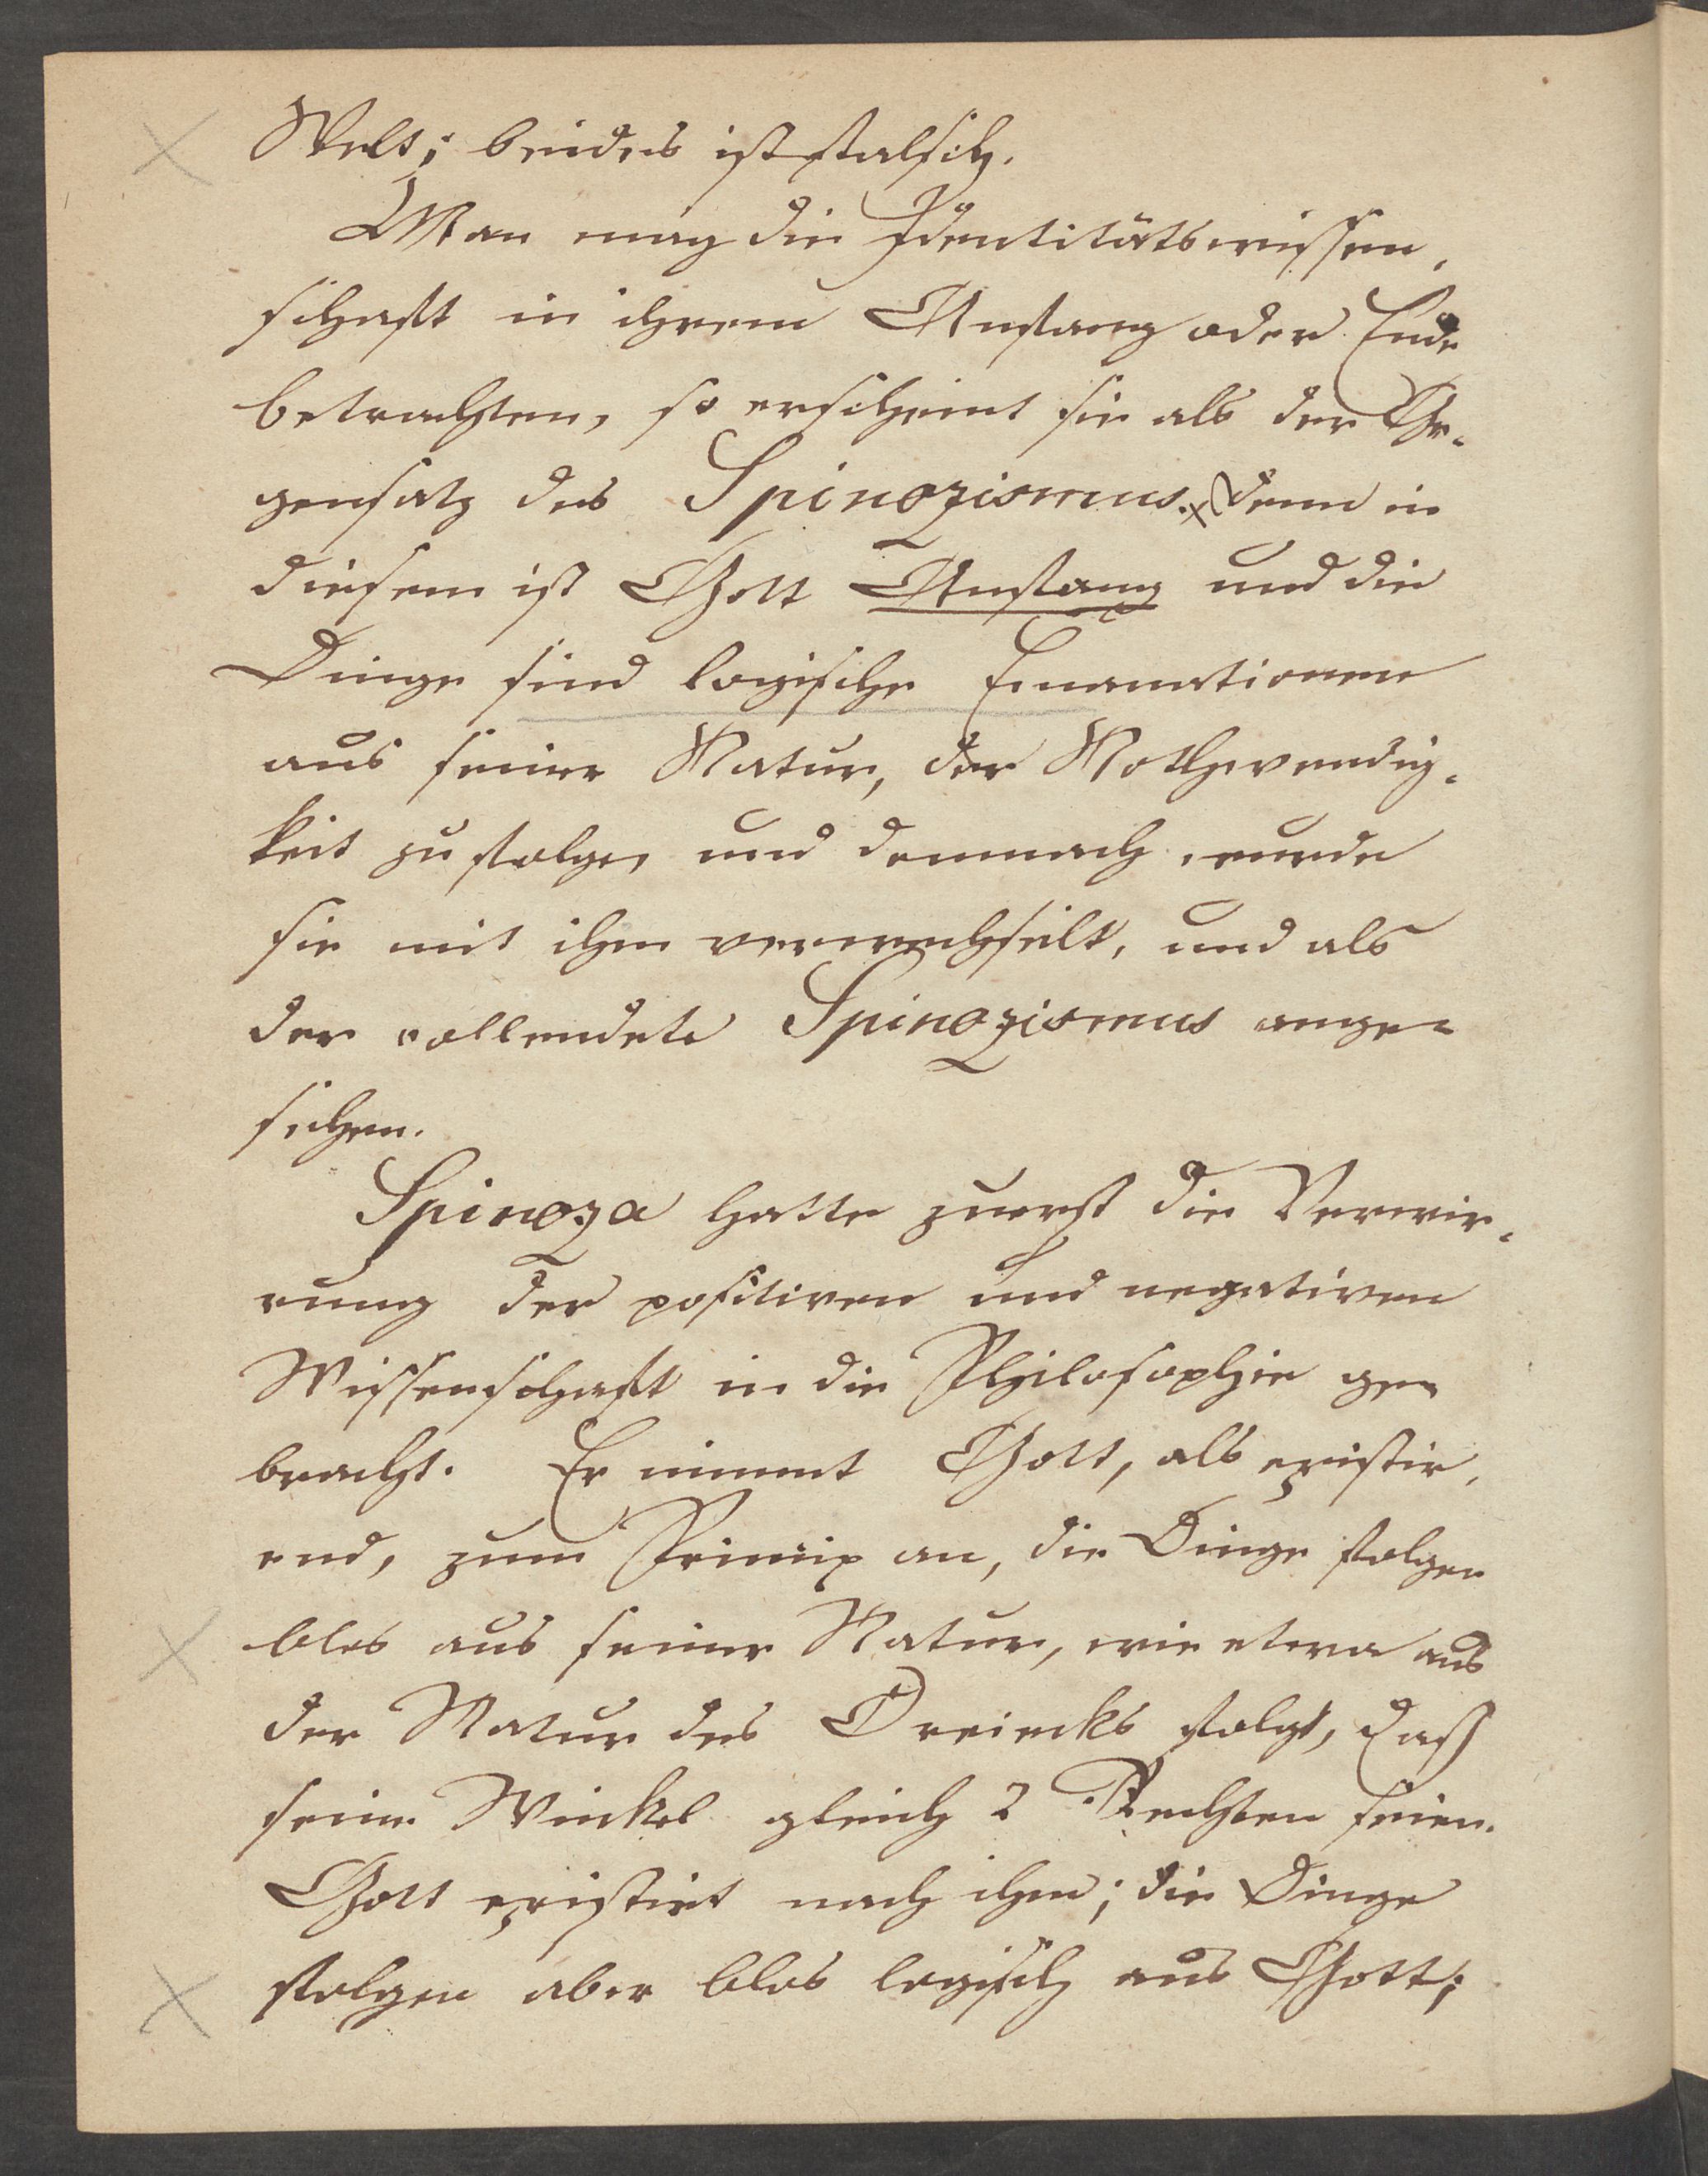 Welt; beides ist falsch.
Man mag die Identitätswissen-
schaft in ihrem Anfang oder Ende
betrachten, so erscheint sie als der Ge-
gensatz des Spinozismus. denn in
diesem ist Gott Anfang und die
Dinge sind logische Emanationen
aus seiner Natur, der Nothwendig-
keit zu folge, und dennoch wurde
sie mit ihm verwechselt, und als
der vollendete Spinozismus ange-
sehen.
Spinoza hatte zuerst die Verwir-
rung der positiven und negativen
Wissenschaft in die Philosophie ge-
bracht. Er nimmt Gott, als existir-
end, zum Princip an, die Dinge folgen
blos aus seiner Natur, wie etwa aus
der Natur des Dreiecks folgt, daß
seine Winkel gleich 2 Rechten seien.
Gott existirt nach ihm; die Dinge
folgen aber blos logisch aus Gott;